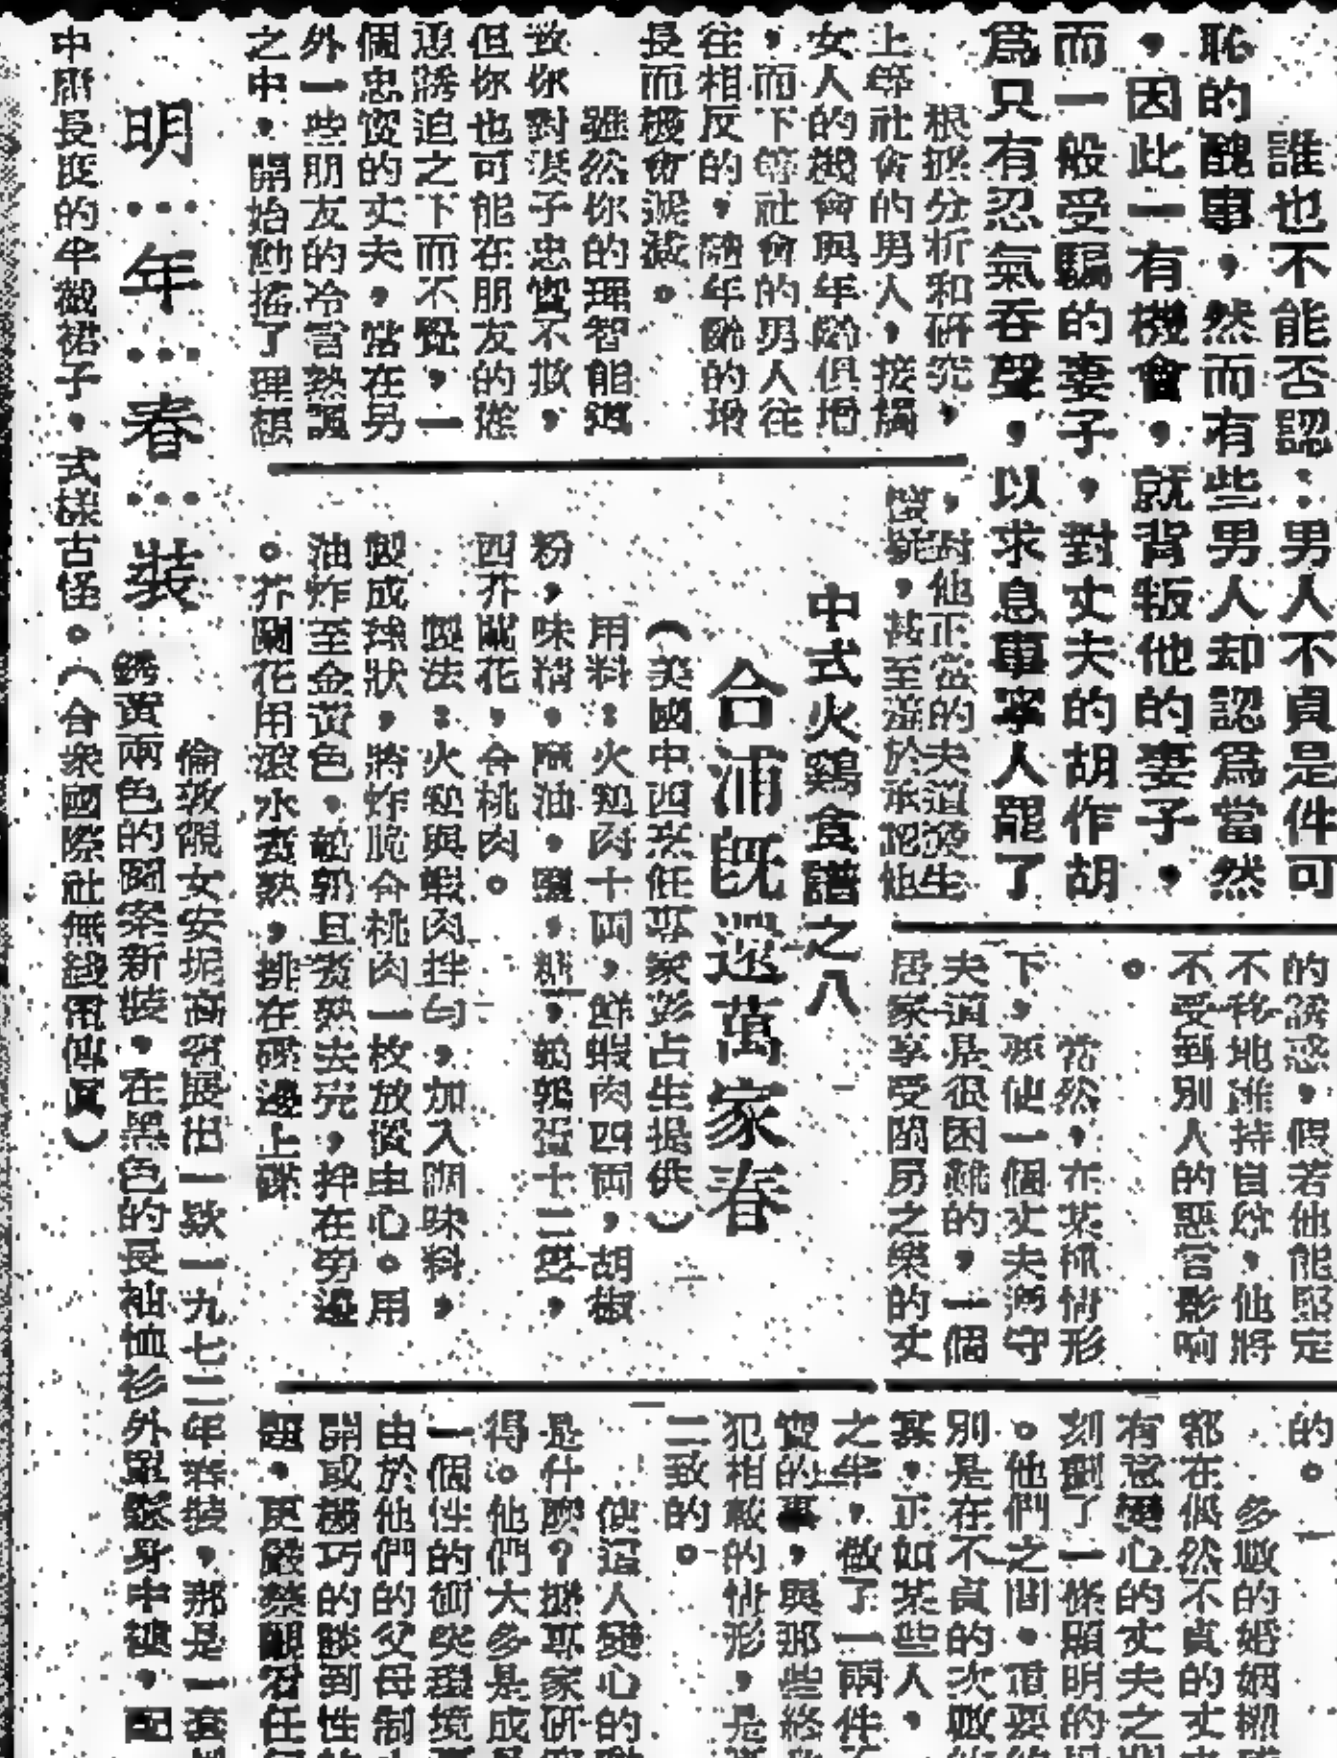 誰也不能否認：男人不貞是件可
恥的醜事，然而有些男人却認爲當然
，因此一有機會，就背叛他的妻子，
而一般受騙的妻子，對丈夫的胡作胡
爲只有忍氣吞聲，以求息事寧人罷了
根據分析和研究，
上等社會的男人，接觸
女人的機會與年齡俱增
，而下等社會的男人往
往相反的，隨年齡的增
長而機會遞減。
雖然你的理智能
致你對妻子忠實不欺，
但你也可能在朋友的慫
誘迫之下而不覺，一
個忠實的丈夫，常在另
外一些朋友的冷言熱諷
之中，開始動搖了理想
，對他正當的夫道發生
懷疑，甚至於承認他
的誘惑，假若他能堅定
不移地維持自己，他將
不受到別人的惡言影响
。
當然，在某種情形
下，要他一個丈夫遵守
夫道是很困難的，一個
居家享受閨房之樂的丈
中式火鷄食譜之八
合浦旣還萬家春
（美國中西烹飪專家彭占生提供）
用料：火鷄肉十両，鮮蝦肉四両，胡椒
粉，味精，麻油，鹽，糖，鵪鶉蛋十二隻，
西芥蘭花，合桃肉。
製法：火鷄與蝦肉拌勻，加入調味料，
製成球狀，將炸脆合桃肉一枚放從中心。用
油炸至金黃色，鵪鶉旦煮熟去売，拌在旁邊
。芥蘭花用滾水煮熟，排在碟邊上碟
的。
多數的婚姻
都在偶然不貞的丈
有變心的丈夫之
刻劃了一條顯明的
。他們之間，重要
別是在不貞的次數
寡，正如某些人，
之年，做了一兩件
實的事，與那些終
犯相較的情形，是
二致的。
使這人變心的
是什麽？據專家研
得。他們大多是成
一個性的衝突環境
由於他們的父母制
開或機巧的談到性
題，更嚴禁觀看任
明…年…春…裝
倫敦靚女安妮高羽展出一欵一九七二年春裝，那是一套
銹黃兩色的圖案新裝，在黑色的長袖恤衫外罩緊身中褸，配
中膝長度的半截裙子，式樣古怪。（合衆國際社無綫電傳眞）